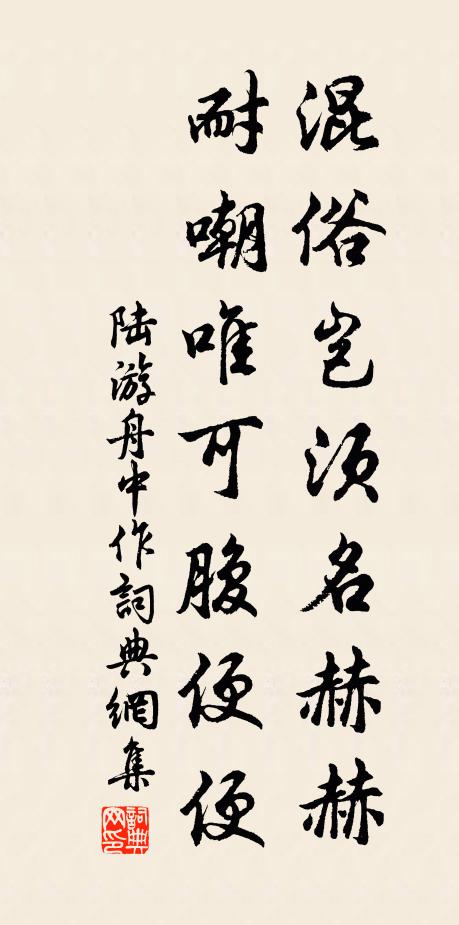 混俗岂须名赫赫
耐嘲唯可腹便便
陆游舟中作詞典網集
詞典网印